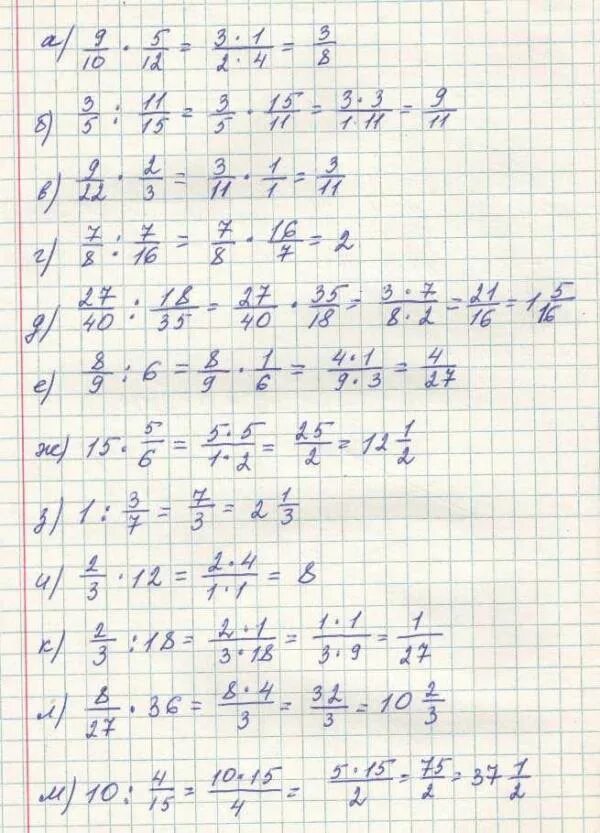 а) 9/10 · 5/12 = 3·1/2·4 = 3/8
б) 3/5 : 11/15 = 3/5 · 15/11 = 3·3/1·11 = 9/11
в) 9/22 · 2/3 = 3/11 · 1/1 = 3/11
г) 7/8 : 7/16 = 7/8 · 16/7 = 2
д) 27/40 : 18/35 = 27/40 · 35/18 = 3·7/8·2 = 21/16 = 1 5/16
е) 8/9 : 6 = 8/9 · 1/6 = 4·1/9·3 = 4/27
ж) 15 · 5/6 = 5·5/1·2 = 25/2 = 12 1/2
з) 1 : 3/7 = 7/3 = 2 1/3
и) 2/3 · 12 = 2·4/1·1 = 8
к) 2/3 : 18 = 2·1/3·18 = 1·1/3·9 = 1/27
л) 8/27 · 36 = 8·4/3 = 32/3 = 10 2/3
м) 10 : 4/15 = 10·15/4 = 5·15/2 = 75/2 = 37 1/2